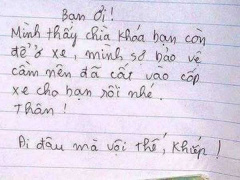 Bạn ơi!
Mình thấy chìa khóa bạn còn
để ở xe, mình sợ bảo vệ
cầm nên đã cất vào cốp
xe cho bạn rồi nhé.
Thân!
Đi đâu mà vội thế, khiếp!